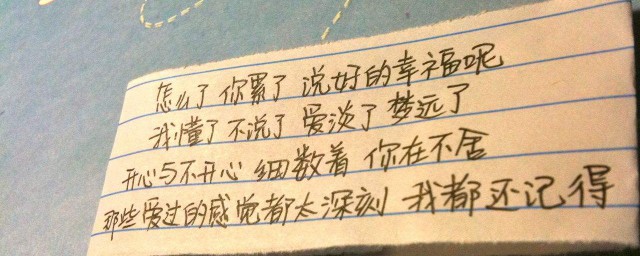 怎么了 你累了 说好的幸福呢
我懂了 不说了 爱淡了 梦远了
开心与不开心 细数着 你在不舍
那些爱过的感觉都太深刻 我都还记得